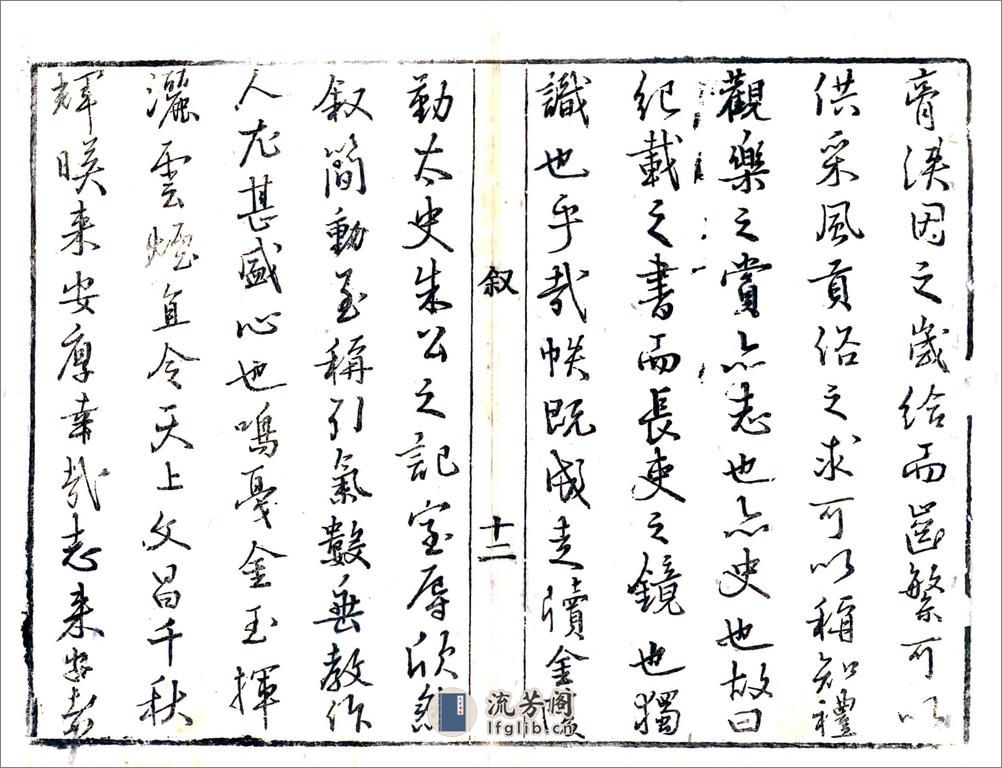 膏渶因之歲給而啚繁可以
供采風貢俗之求可以稱知禮
觀樂之賞亦志也亦史也故曰
紀載之書而長吏之鏡也獨
識也乎哉帙既成走牘金
叙
十二
勤太史朱公之記室辱欣然
叙簡動至稱引氣數垂教作
人尤甚盛心也鳴戞金玉揮
灑雲煙直令天上文昌千秋
輝暎来安厚幸哉志来安者
流芳阁
lfglib.cn